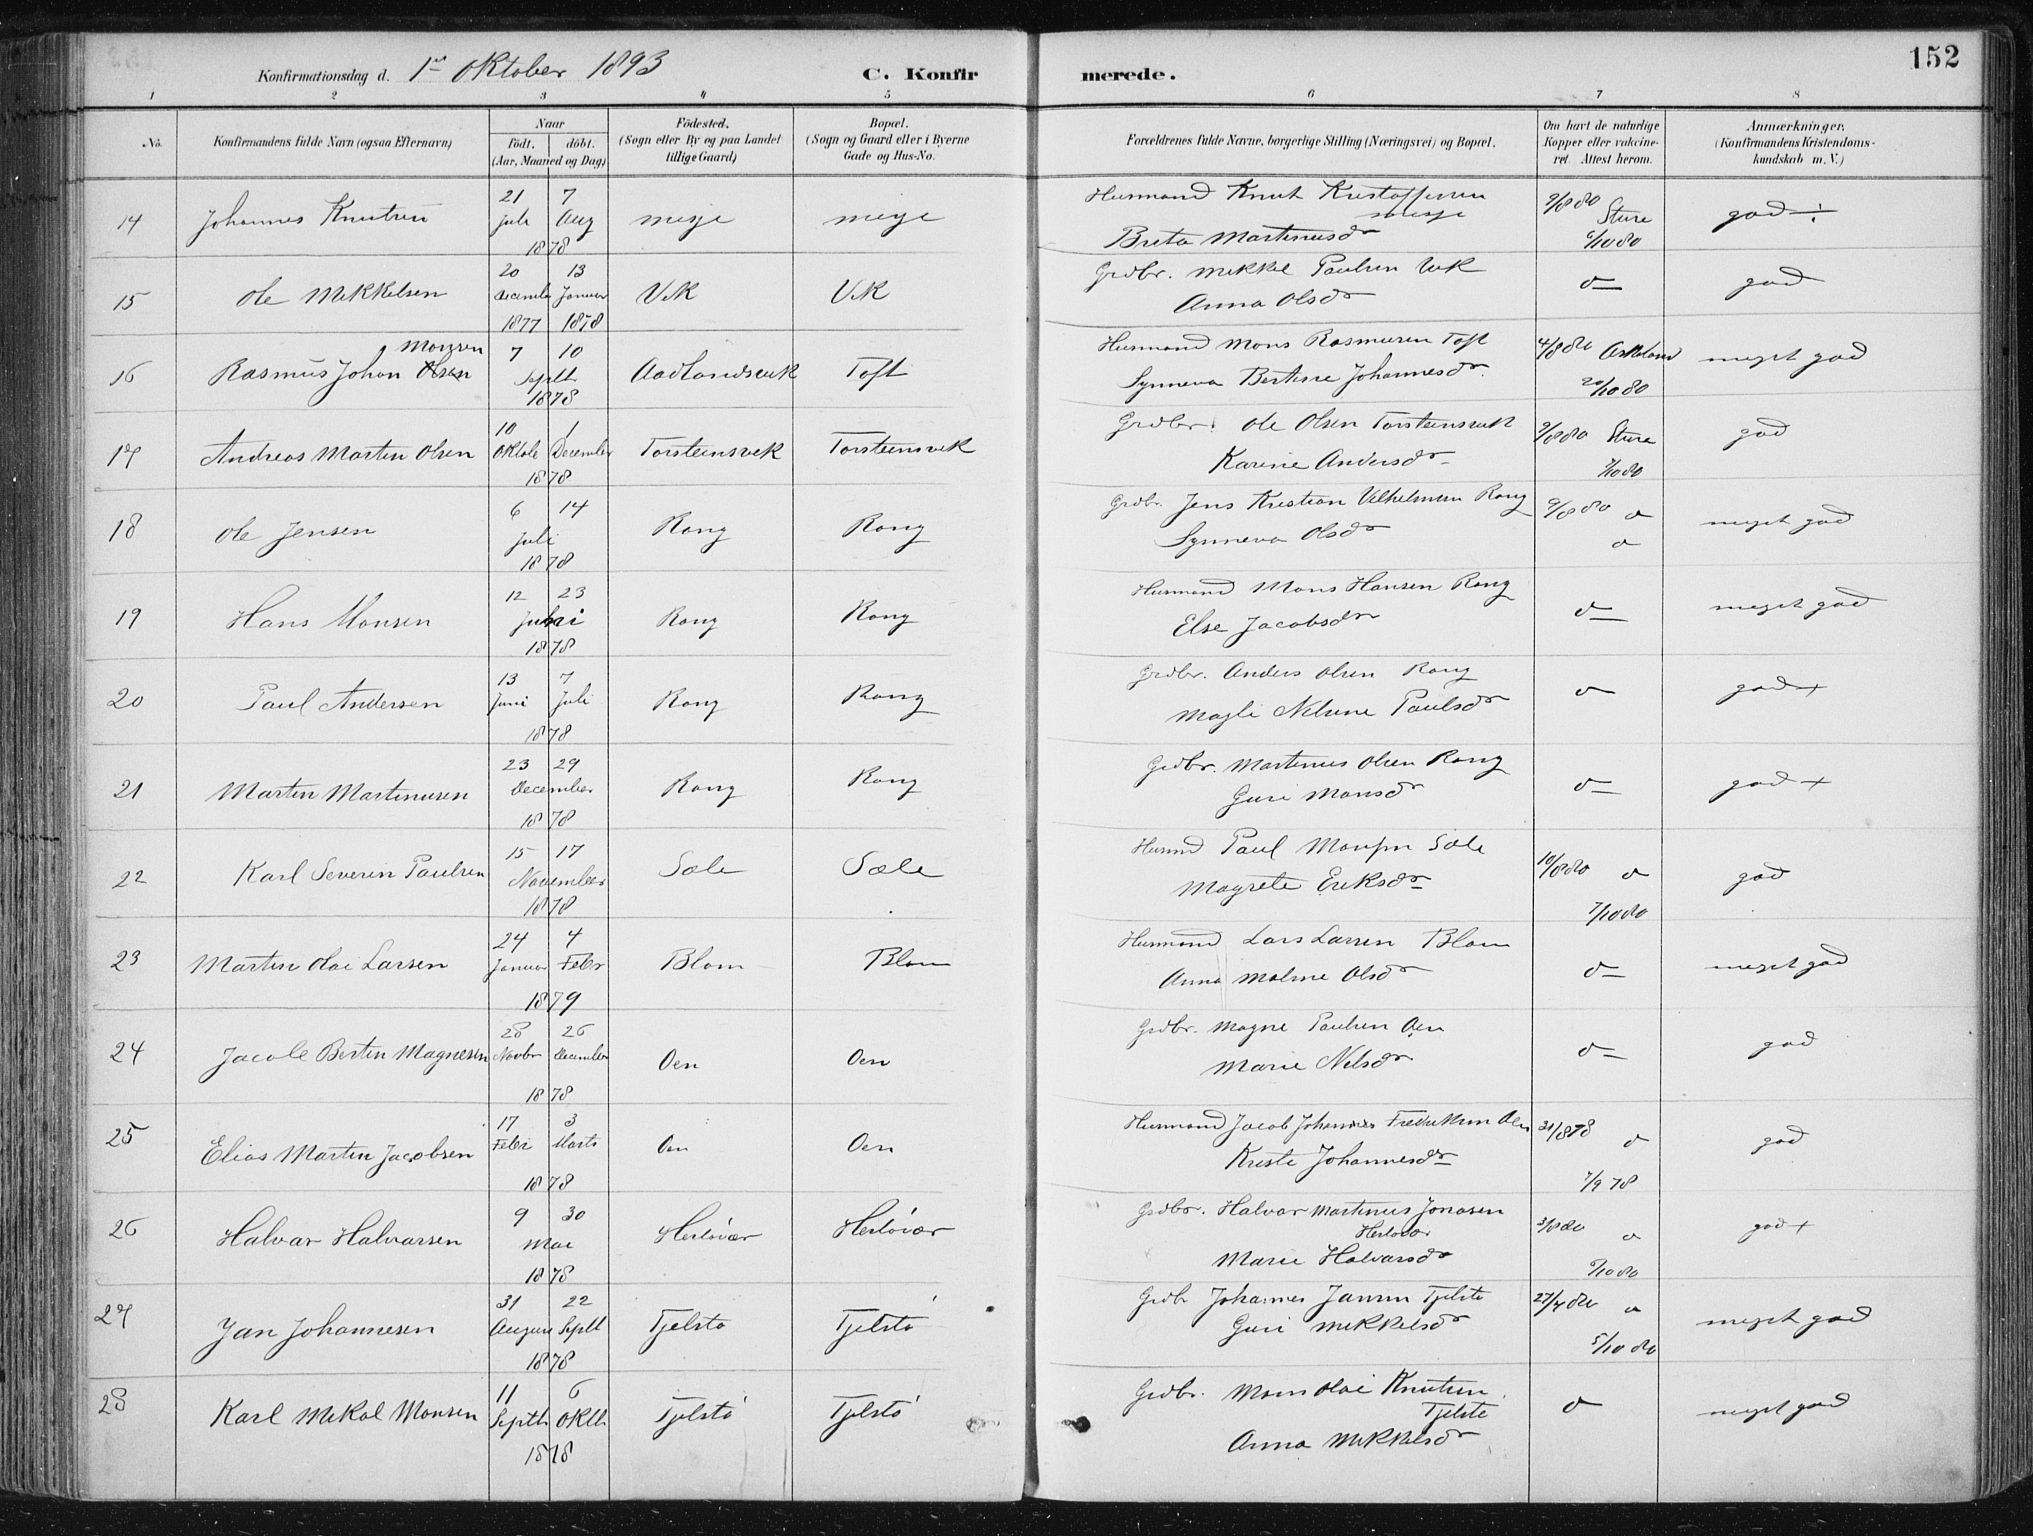 152
Konfirmationsdag d. 1ste Oktober 1893
C. Konfirmerede.
1 2 3 4 5 6 7 8
No.
Konfirmandens fulde Navn (ogsaa Efternavn)
Naar
født. døbt.
(Aar, Maaned og Dag)
Fødested.
(Sogn eller By og paa Landet
tillige Gaard)
Bopæl.
(Sogn og Gaard eller i Byerne
Gade og Hus-No.
Forældrenes fulde Navne, borgerlige Stilling (Næringsvei) og Bopæl.
Om havt de naturlige
Kopper eller vakcine-
ret. Attest herom.
Anmærkninger.
(Konfirmandens Kristendoms-
kundskab m. V.)
14 Johannes Knutsen 21 Juli 7 Aug 1878 Husmand Knut Kristoffersen
Brita Martinusdr 9/8 80 Sture 6/10 80 god ÷
15 Ole Mikkelsen 20 Decembr 1877 13 Januar 1878 Vik Vik Grdbr. Mikkel Paulsen Vik
Anna Olsdr do god
16 Rasmus Johan Olsen Monsen 7 10 Septb 1878 Aadlandsvik Toft Husmand Mons Rasmusen Toft
Synneva Bertine Johannesdr 4/8 80 Askeland 20/10 80 meget god
17 Andreas Martin Olsen 10 Oktob 1 December 1878 Torsteinsvik Torsteinsvik Grdbr. Ole Olsen Torsteinsvik
Karine Andersdr 9/8 80 Sture 7/10 80 god
18 Ole Jensen 6 14 Juli 1878 Rong Rong Grdbr. Jens Kristian Vilhelmsen Rong
Synneva Olsdr 9/8 80 do do meget god
19 Hans Monsen 12 23 Juni 1878 Rong Rong Husmand Mons Hansen Rong
Else Jacobsdr do meget god
20 Paul Andersen 13 Juni 7 Juli 1878 Rong Rong Grdbr. Anders Olsen Rong
Magli Nilsine Paulsdr do god +
21 Martin Martinusen 23 29 December 1878 Rong Rong Grdbr. Martinus Olsen Rong
Guri Monsdr do god +
22 Karl Severin Paulsen 15 17 November 1878 Sæle Sæle Husmd Paul Monsen Sæle
Magrete Eriksdr 10/8 80 do 7/10 80 god
23 Martin Olai Larsen 24 Januar 4 Febr 1879 Blom Blom Husmand Lars Larsen Blom
Anna Malene Olsdr do meget god
24 Jacob Bertin Magnesen 28 Novbr 26 December 1878 Oen Oen Grdbr. Magne Paulsen Oen
Marie Nilsdr do god
25 Elias Martin Jacobsen 17 Febr 3 Marts 1878 Oen Oen Husmand Jacob Johannes Fredriksen Oen
Kristi Johannesdr 31/8 78 do 7/9 78 god
26 Halvar Halvarsen 9 30 Mai 1878 Herløvær Herløvær Grdbr. Halvar Martinus Jonasen
Herløvær
Marie Halvarsdr do god +
27 Jan Johannesen 31 August 22 Septb 1878 Tjelstø Tjelstø Grdbr Johannes Jansen Tjelstø
Guri Mikkelsdr 27/7 80 do 5/10 80 meget god
28 Karl Mikal Monsen 11 Septb 6 Oktb 1878 Tjelstø Tjelstø Grdbr. Mons Olai Knutsen
Tjelstø
Anna Mikkelsdr do meget god